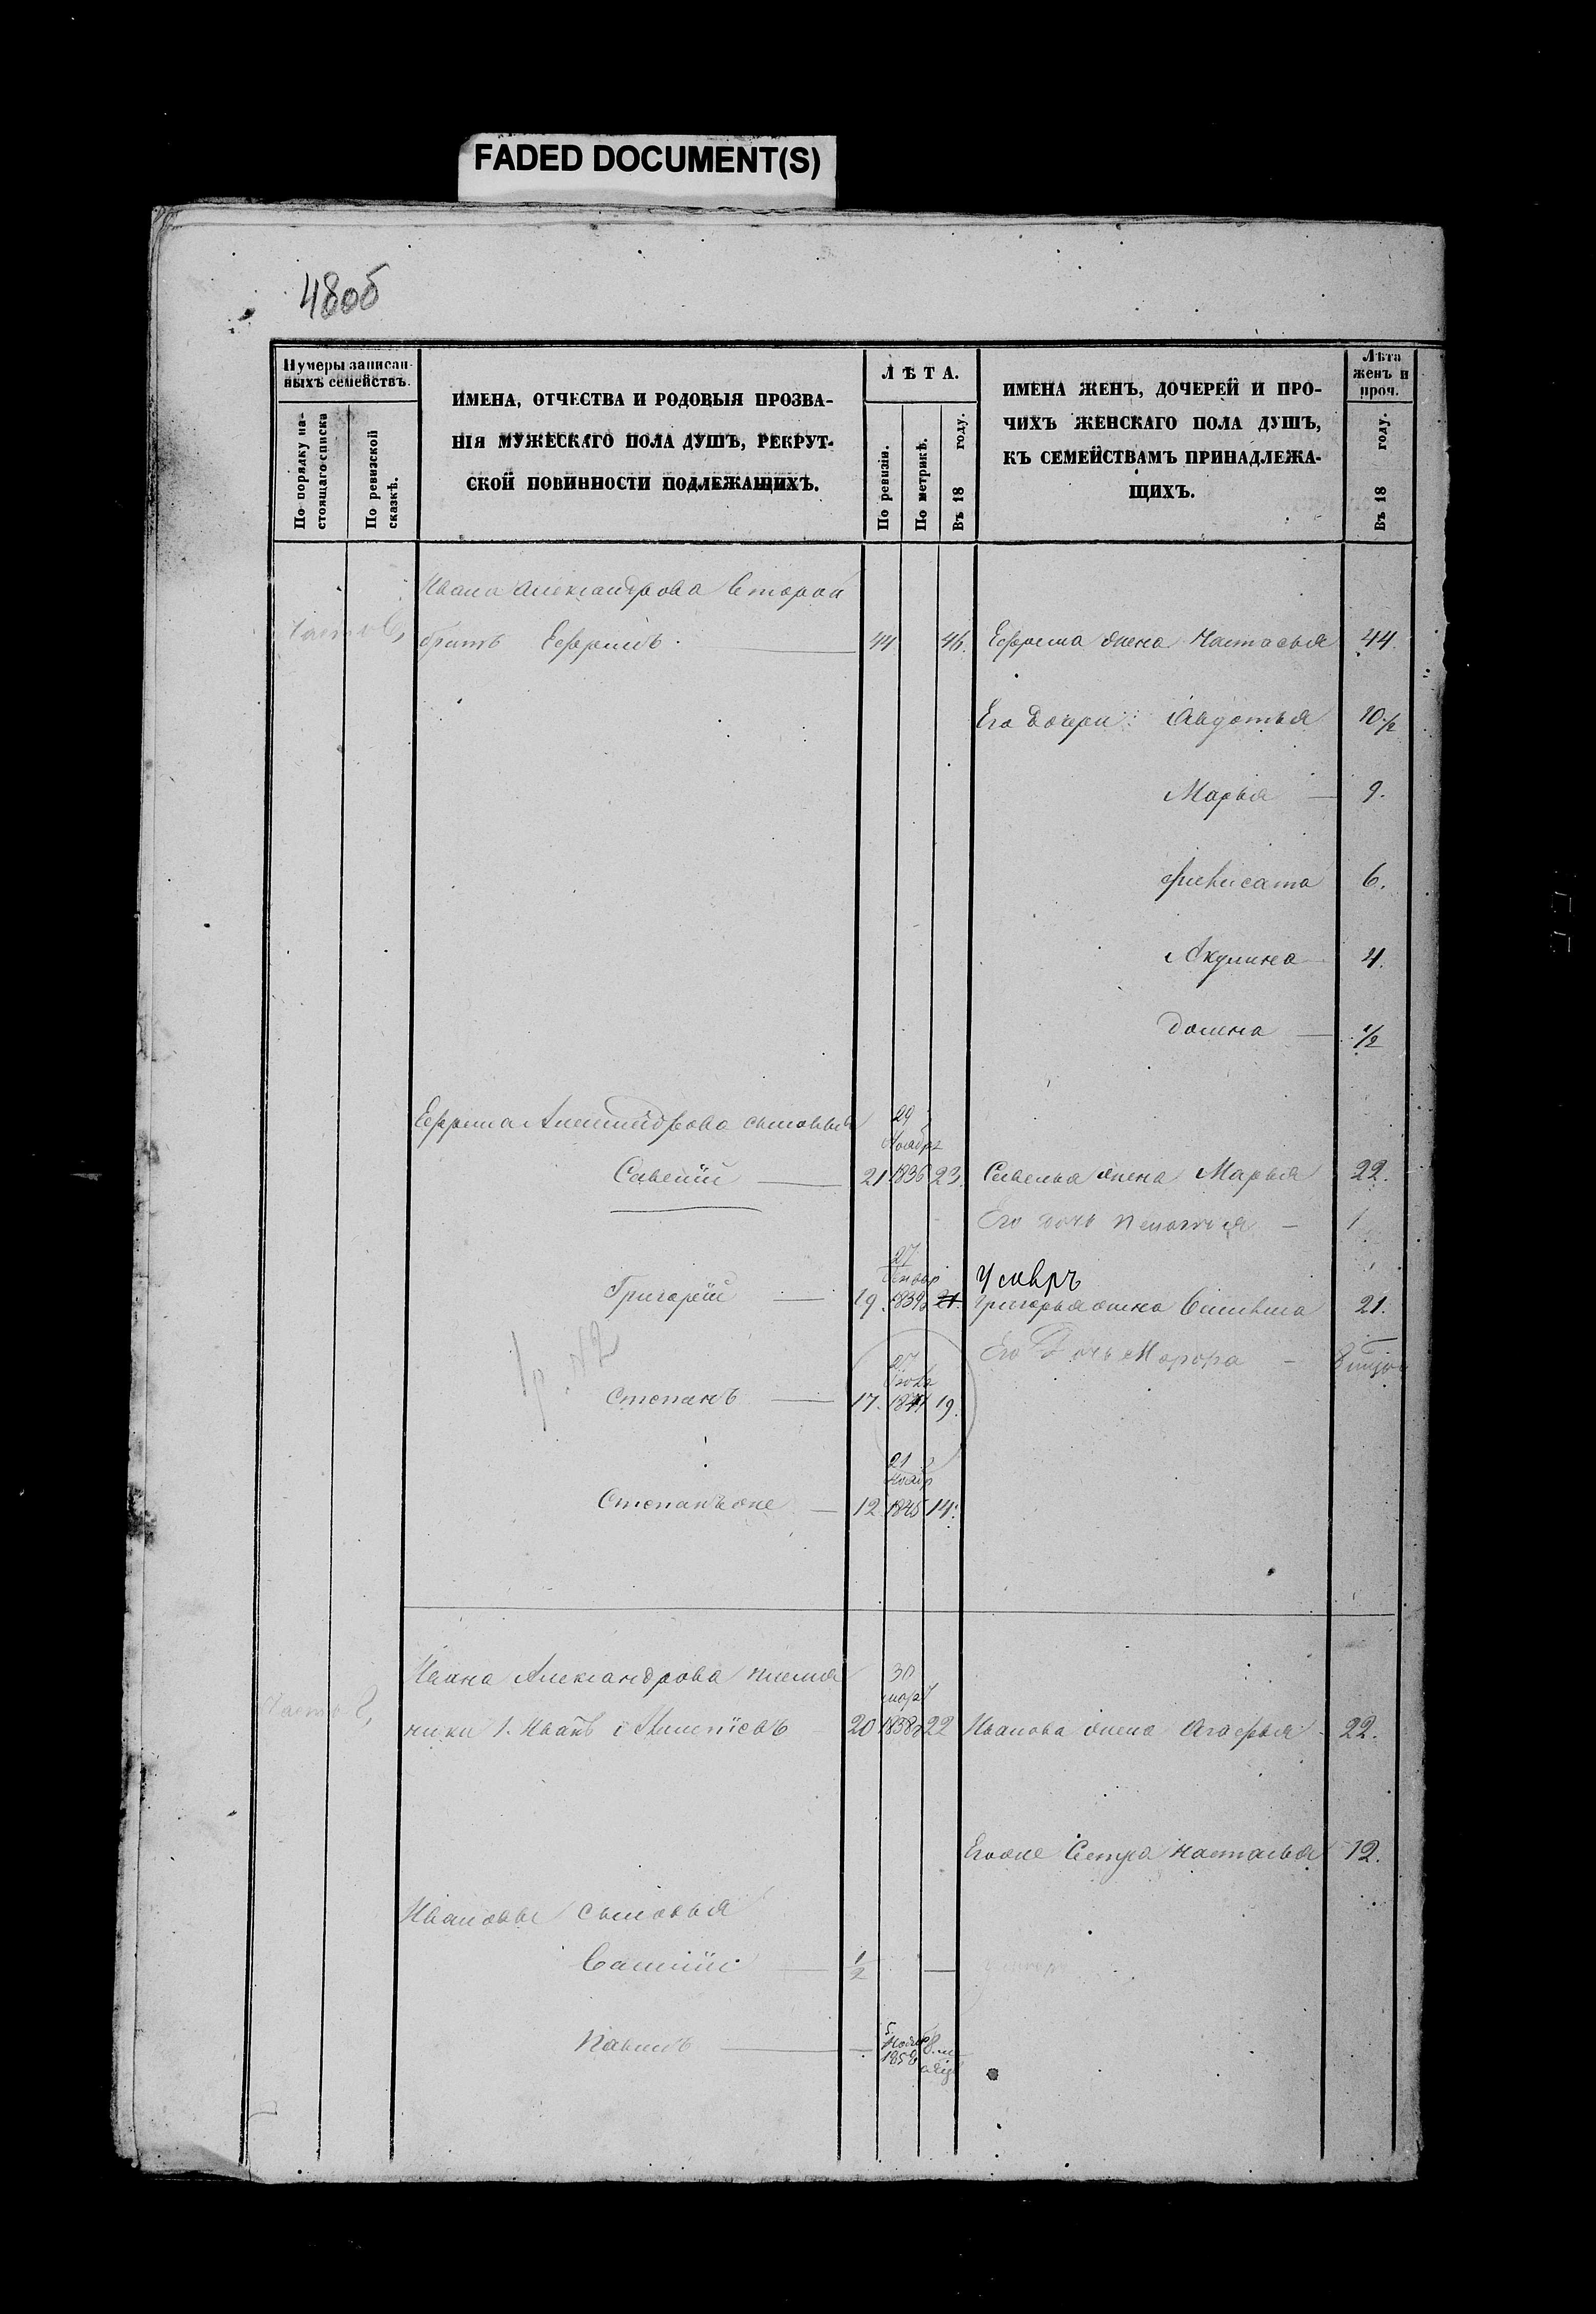 FADED DOCUMENT(S)
48об
Нумеры записан-
ныхъ семействъ.
По порядку на-
стоящаго списка
По ревизской
сказкѣ.
ИМЕНА, ОТЧЕСТВА И РОДОВЫЯ ПРОЗВА-
НІЯ МУЖЕСКАГО ПОЛА ДУШЪ, РЕКРУТ-
СКОЙ ПОВИННОСТИ ПОДЛЕЖАЩИХЪ.
ЛѢТА.
По ревизіи.
По метрикѣ.
Въ 18 году.
ИМЕНА ЖЕНЪ, ДОЧЕРЕЙ И ПРО-
ЧИХЪ ЖЕНСКАГО ПОЛА ДУШЪ,
КЪ СЕМЕЙСТВАМЪ ПРИНАДЛЕЖА-
ЩИХЪ.
Лѣта
женъ и
проч.
Въ 18 году.
Ивана Александрова второй
братъ Ефремъ 44 46. Ефрема жена Настасья 44.
Его дочери: Авдотья 10 1/2
Марья 9.
6.
Акулина 4.
Домна 1/2
Ефрема Александрова сыновья 29
Ноябр
Савелій 21 1836 23. Савелья жена Марья 22.
Его дочь Пелагія 1
27
Генвар умеръ
Григорій 19. 1839 21. Григорья жена 21.
Его Дочь 8
27
Степанъ 17. 1841 19.
21
Ноябр
Степанъ же 12 1845 14.
Ивана Александрова племян 30
март
ники 1. Иванъ 20 1838 22 Иванова жена Агафья 22.
Егоже Сестра Наталья 12.
Ивановы сыновья
Василій 1/2
Павелъ 5
Нояб
1858